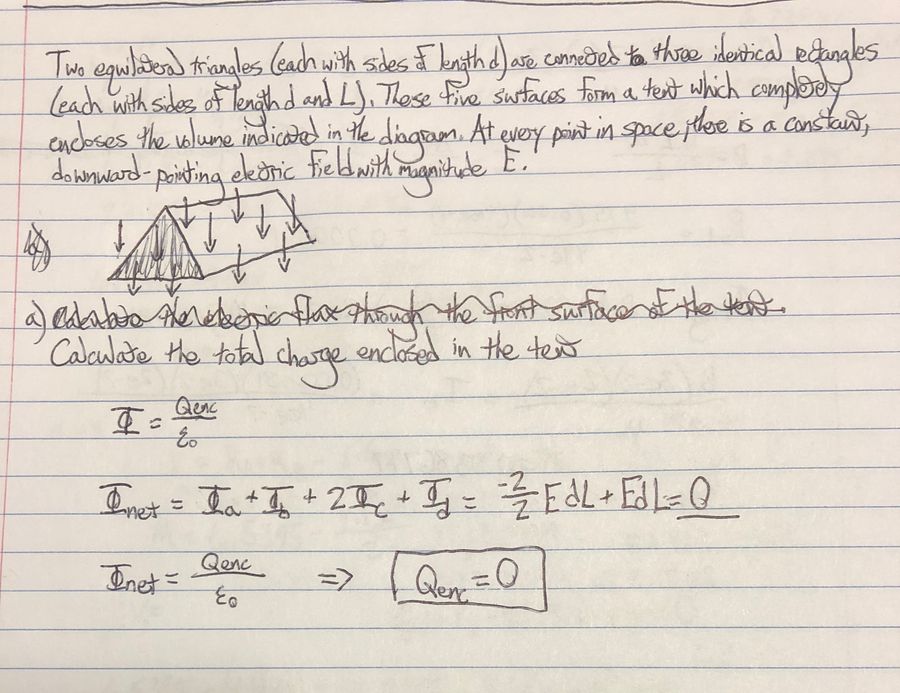 Two equilateral triangles (each with sides of length d) are connected to three identical rectangles
(each with sides of length d and L). These five surfaces form a tent which completely
encloses the volume indicated in the diagram. At every point in space, there is a constant,
downward-pointing electric field with magnitude E.
b)
a) Calculate the electric flux through the front surface of the tent.
Calculate the total charge enclosed in the tent
Φ = Qenc/ε₀
Φnet = Φa + Φb + 2Φc + Φd = -2/2 EdL + EdL = 0
Φnet = Qenc/ε₀ => Qenc = 0